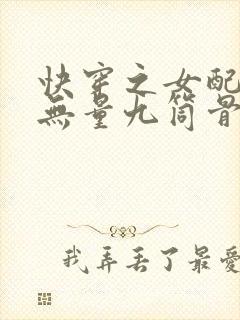 快穿之女配
無量九筒骨
我弄丢了最愛